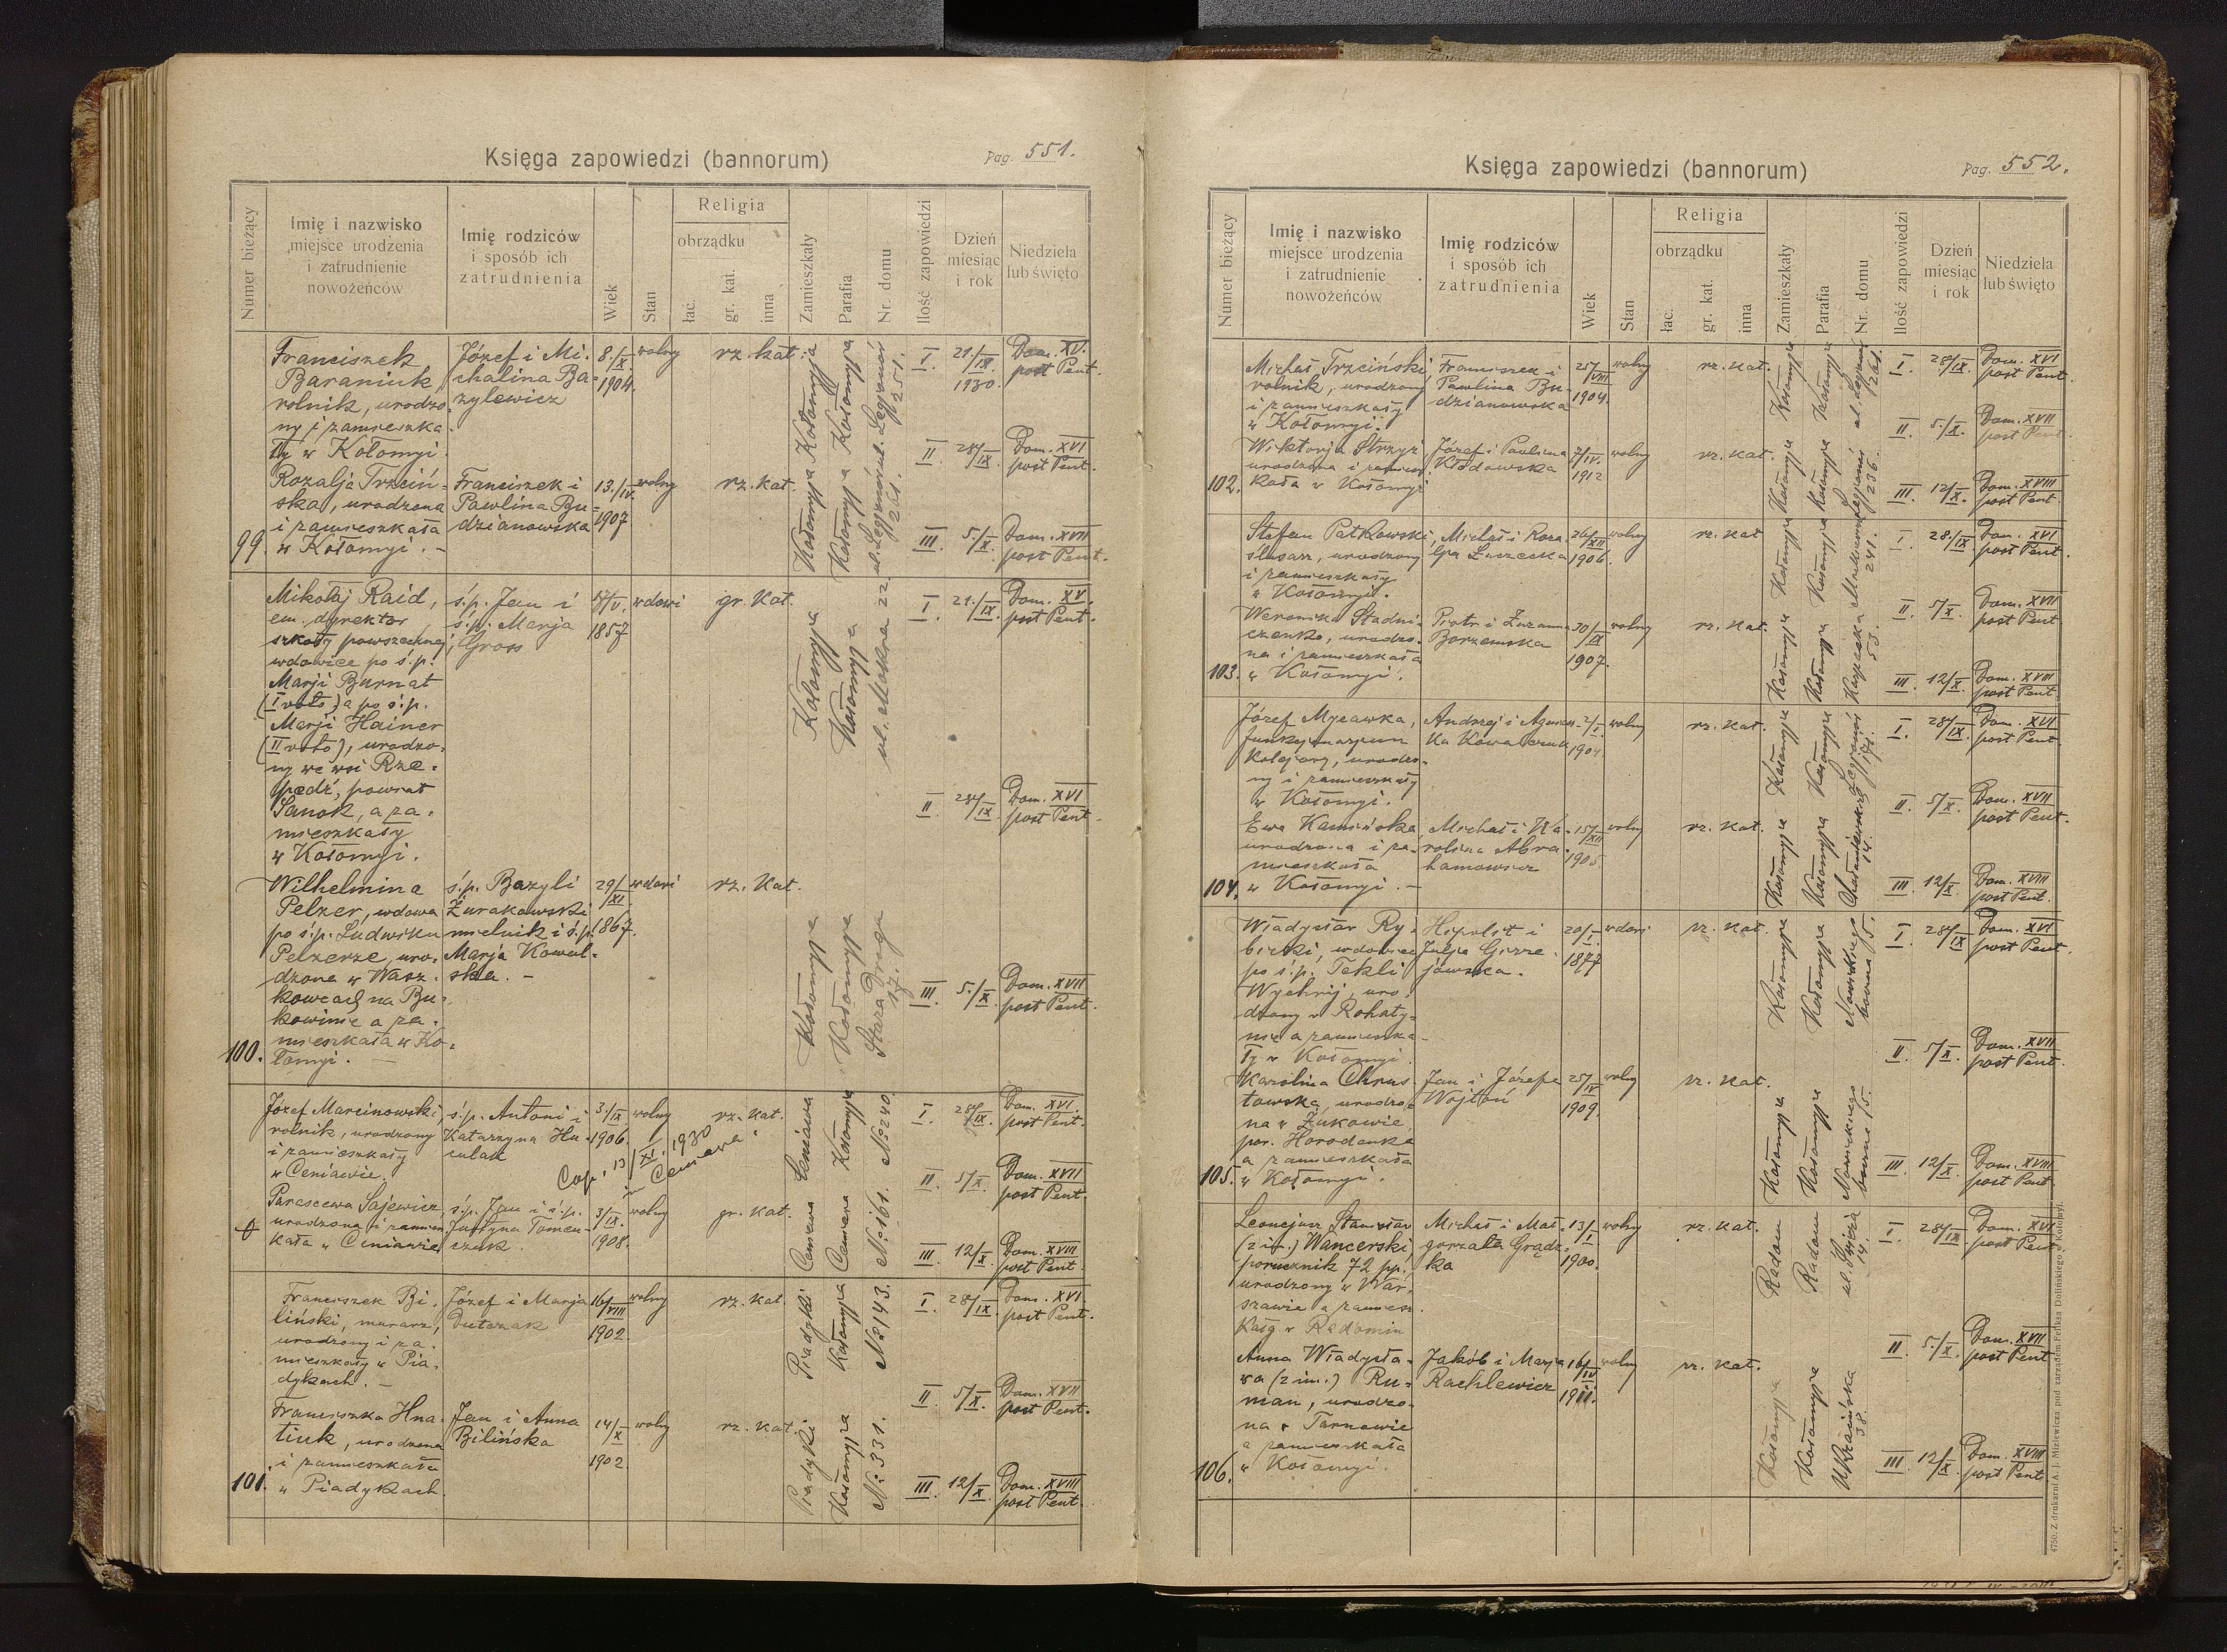 Księga zapowiedzi (bannorum)
Pag. 551.
Numer bieżący
Imię i nazwisko
miejsce urodzenia
i zatrudnienie
nowożeńców
Imię rodziców
i sposób ich
zatrudnienia
Wiek
Stan
Religia
obrządku
łac.
gr. kat.
inna
Zamieszkały
Parafia
Nr. domu
Ilość zapowiedzi
Dzień
miesiąc
i rok
Niedziela
lub święto
99.
Franciszek
Baraniuk,
rolnik, urodzo-
ny i zamieszka-
ły w Kołomyi.
Józef i Mi-
chalina Ba-
zylewicz
8./X.
1904.
wolny
rz. kat.
Kołomyja
Kołomyja
ul. Legjonów
251.
I. 21./IX 1930. Dom. XV. post Pent.
II. 28/IX. Dom. XVI post Pent.
Rozalja Trzciń-
ska, urodzona
i zamieszkała
w Kołomyi. –
Franciszek i
Pawlina Bu-
dzianowska
13./IV.
1907.
wolny
rz. kat.
Kołomyja
Kołomyja
ul. Legjonów
261.
III. 5./X. Dom. XVII post Pent.
100.
Mikołaj Raid,
em. dyrektor
szkoły powszechnej,
wdowiec po ś.p.
Marji Burnat
(I voto) a po ś.p.
Marji Hainer
(II voto), urodzo-
ny we wsi Rze-
pedź, powiat
Sanok, a za-
mieszkały
w Kołomyi.
ś.p. Jan i
ś.p. Marja
Gross
/V.
1857
wdowi
gr. kat.
Kołomyja
Kołomyja
ul. Mokra 22
I. 21./IX. Dom. XV. post Pent.
II. 28/IX. Dom. XVI post Pent.
Wilhelmina
Pelzer, wdowa
po ś.p. Ludwiku
Pelzerze, uro-
dzona w Wasz-
kowcach na Bu-
kowinie a za-
mieszkała w Ko-
łomyi. –
ś.p. Bazyli
Żurakowski
mielnik i ś.p.
Marja Kowal-
ska. –
29/XI.
1867.
wdowi
rz. kat.
Kołomyja
Kołomyja
Stara Droga
17.
III. 5./X. Dom. XVII post Pent.
Józef Marcinowski,
rolnik, urodzony
i zamieszkały
w Ceniawie.
ś.p. Antoni i
Katarzyna Hu-
culak
3./IX
1906.
wolny
rz. kat.
Cop. 13/XI. 1930
in Ceniawa
Ceniawa
Kołomyja
№ 240.
I. 28/IX. Dom. XVI. post Pent.
II. 5/X. Dom. XVII post Pent.
Parascewa Sajewicz
urodzona i zamiesz-
kała w Ceniawie
ś.p. Jan i ś.p.
Justyna Tomeu-
czuk.
3/IX.
1908.
wolny
gr. kat.
Ceniawa
Ceniawa
№ 161.
III. 12/X. Dom. XVIII post Pent.
101.
Franciszek Bi-
liński, murarz,
urodzony i za-
mieszkały w Pia-
dykach. –
Józef i Marja
Dutczak
16/VIII
1902.
wolny
rz. kat.
Piadyki
Kołomyja
№ 143.
I. 28/IX. Dom. XVI. post Pent.
II. 5/X. Dom. XVII post Pent.
Franciszka Hna-
tiuk, urodzona
i zamieszkała
w Piadykach.
Jan i Anna
Bilińska
14/X
1902.
wolny
rz. kat.
Piadyki
Kołomyja
№ 331.
III. 12/X. Dom. XVIII post Pent.
Księga zapowiedzi (bannorum)
Pag. 552.
Numer bieżący
Imię i nazwisko
miejsce urodzenia
i zatrudnienie
nowożeńców
Imię rodziców
i sposób ich
zatrudnienia
Wiek
Stan
Religia
obrządku
łac.
gr. kat.
inna
Zamieszkały
Parafia
Nr. domu
Ilość zapowiedzi
Dzień
miesiąc
i rok
Niedziela
lub święto
102.
Michał Trzciński,
rolnik, urodzony
i zamieszkały
w Kołomyi.
Franciszek i
Pawlina Bu-
dzianowska
25/VIII
1904.
wolny
rz. kat.
Kołomyja
Kołomyja
ul. Legjonów
261.
I. 28/IX. Dom. XVI post Pent.
II. 5./X. Dom. XVII post Pent.
Wiktorja Strzyż
urodzona i zamiesz-
kała w Kołomyi
Józef i Pawlina
Kłodowska
7/IV.
1912
wolny
rz. kat.
Kołomyja
Kołomyja
Legjonów
236.
III. 12/X. Dom. XVIII post Pent.
103.
Stefan Patkowski,
ślusarz, urodzony
i zamieszkały
w Kołomyi.
Michał i Roza-
lja Łuzecka
26/XII
1906.
wolny
rz. kat
Kołomyja
Kołomyja
241.
I. 28./IX Dom. XVI post Pent.
II. 5/X. Dom. XVII post Pent.
Weronika Stadni-
czenko, urodzo-
na i zamieszkała
w Kołomyi.
Piotr i Zuzanna
Borzemska
30/IX
1907.
wolny
rz. kat.
Kołomyja
Kołomyja
Karpacka
53.
III. 12/X. Dom. XVIII post Pent.
104.
Józef Mycawka,
funkcjonarjusz
kolejowy, urodzo-
ny i zamieszkały
w Kołomyi.
Andrzej i Agniesz-
ka Kowalczuk
2/I.
1904
wolny
rz. kat.
Kołomyja
Kołomyja
Legjonów
171.
I. 28/IX Dom. XVI post Pent.
II. 5/X. Dom. XVII post Pent.
Ewa Kamińska,
urodzona i za-
mieszkała
w Kołomyi. –
Michał i Ka-
rolina Abra-
hamowicz
15/XII
1905
wolny
rz. kat.
Kołomyja
Kołomyja
14.
III. 12/X. Dom. XVIII post Pent.
105.
Władysław Ry-
bicki, wdowiec
po ś.p. Tekli
Wychrij, uro-
dzony w Rohaty-
nie a zamieszka-
ły w Kołomyi.
Hipolit i
Julja Girze-
jowska.
20/I.
1877
wdowi
rz. kat.
Kołomyja
Kołomyja
boczna 5.
I. 28/IX Dom. XVI post Pent.
II. 5/X. Dom. XVII post Pent.
Karolina Chrus-
towska, urodzo-
na w Żukowie,
pow. Horodenka
a zamieszkała
w Kołomyi.
Jan i Józefa
Wojtoń
25/IV
1909.
wolny
rz. kat.
Kołomyja
Kołomyja
boczna 5.
III. 12/X. Dom. XVIII post Pent.
106.
Leonejusz Stanisław
(2 im.) Wancerski,
porucznik 72 pp.
urodzony w War-
szawie a zamiesz-
kały w Radomiu
Michał i Mał-
gorzata Grądz-
ka
13/I.
1900.
wolny
rz. kat.
Radom
Radom
14.
I. 28/IX. Dom. XVI post Pent.
II. 5./X. Dom. XVII post Pent
Anna Władysła-
wa (2 im.) Ru-
man, urodzo-
na w Tarnowie
a zamieszkała
w Kołomyi.
Jakób i Marja
Rachlewicz
16/IV
1911.
wolny
rz. kat.
Kołomyja
Kołomyja
Ukraińska
38.
III. 12/X. Dom. XVIII post Pent
4750. Z drukarni A. J. Miziewicza pod zarządem Feliksa Dolińskiego w Kołomyi.